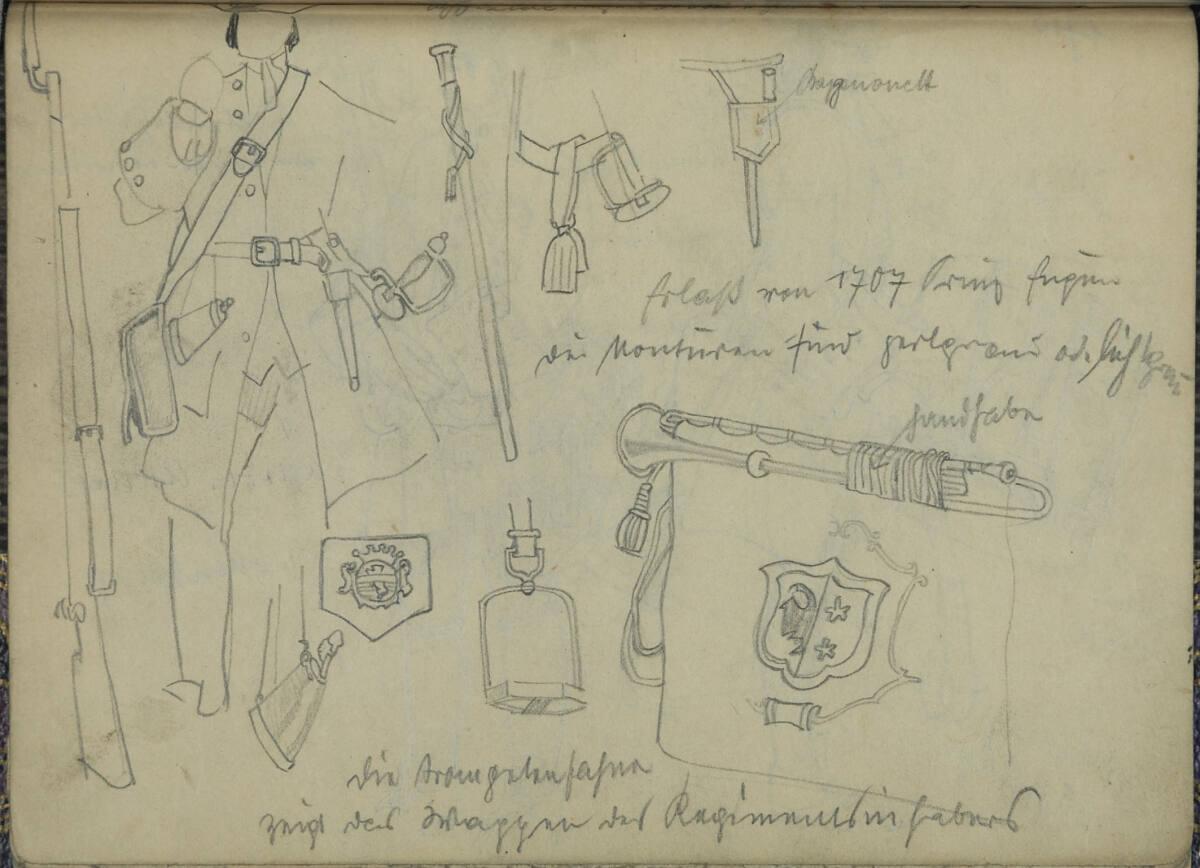 Bayonett
Erlaß von 1707 Prinz Eugen
die Monturen sind perlgrau od. lichtgrau
Handhabe
die Trompetenfahne
zeigt das Wappen des Regimentsinhabers